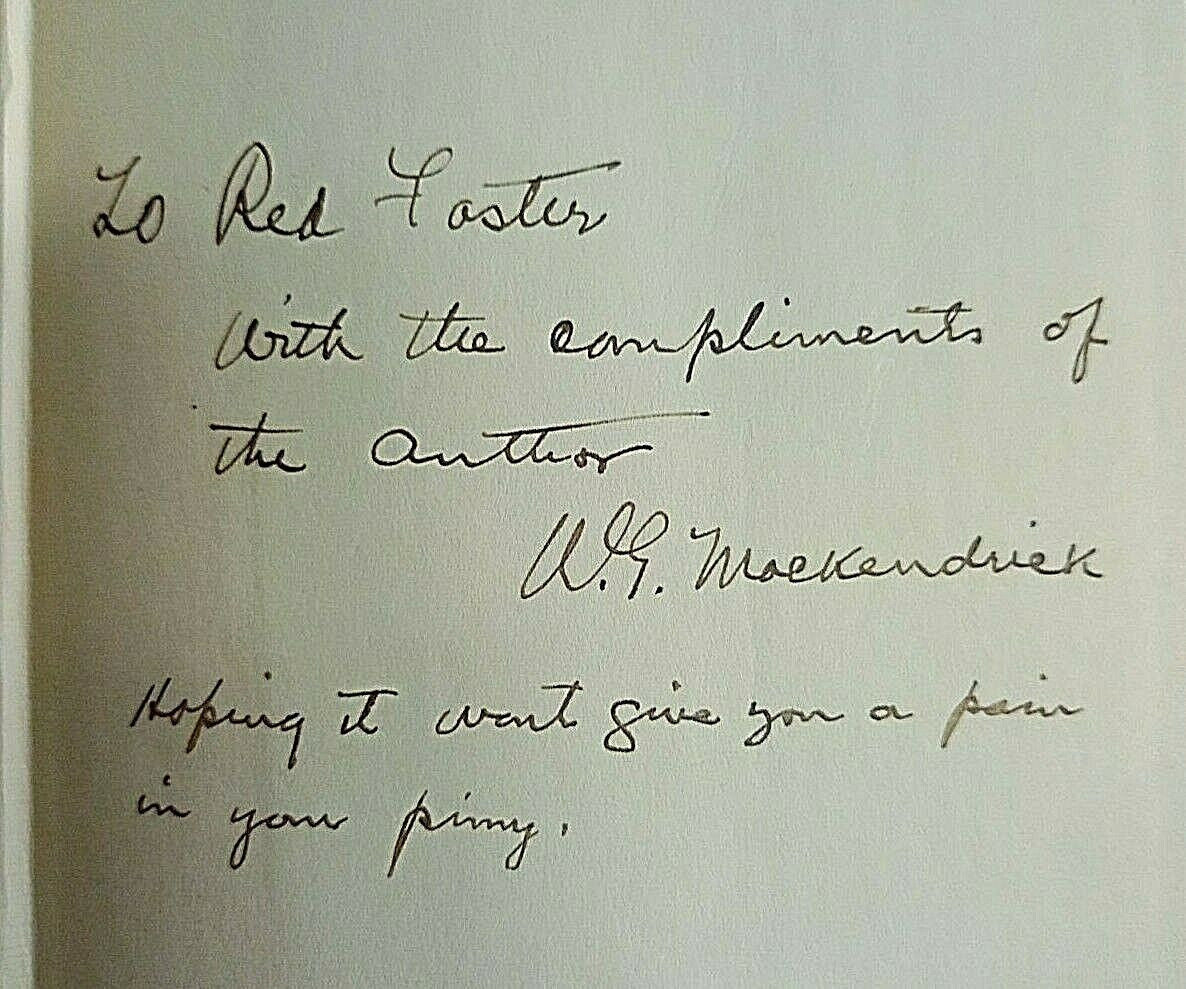 To Red Foster
With the compliments of
the Author
W.G. Mackendrick
Hoping it wont give you a pain
in your pinny.